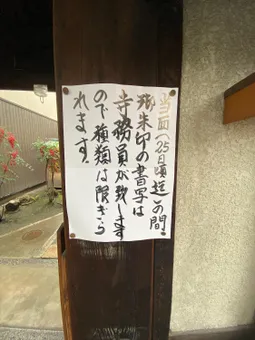 当面(25日頃迄)の間、
御朱印の書写は
寺務員が致します
ので種類は限ら
れます。